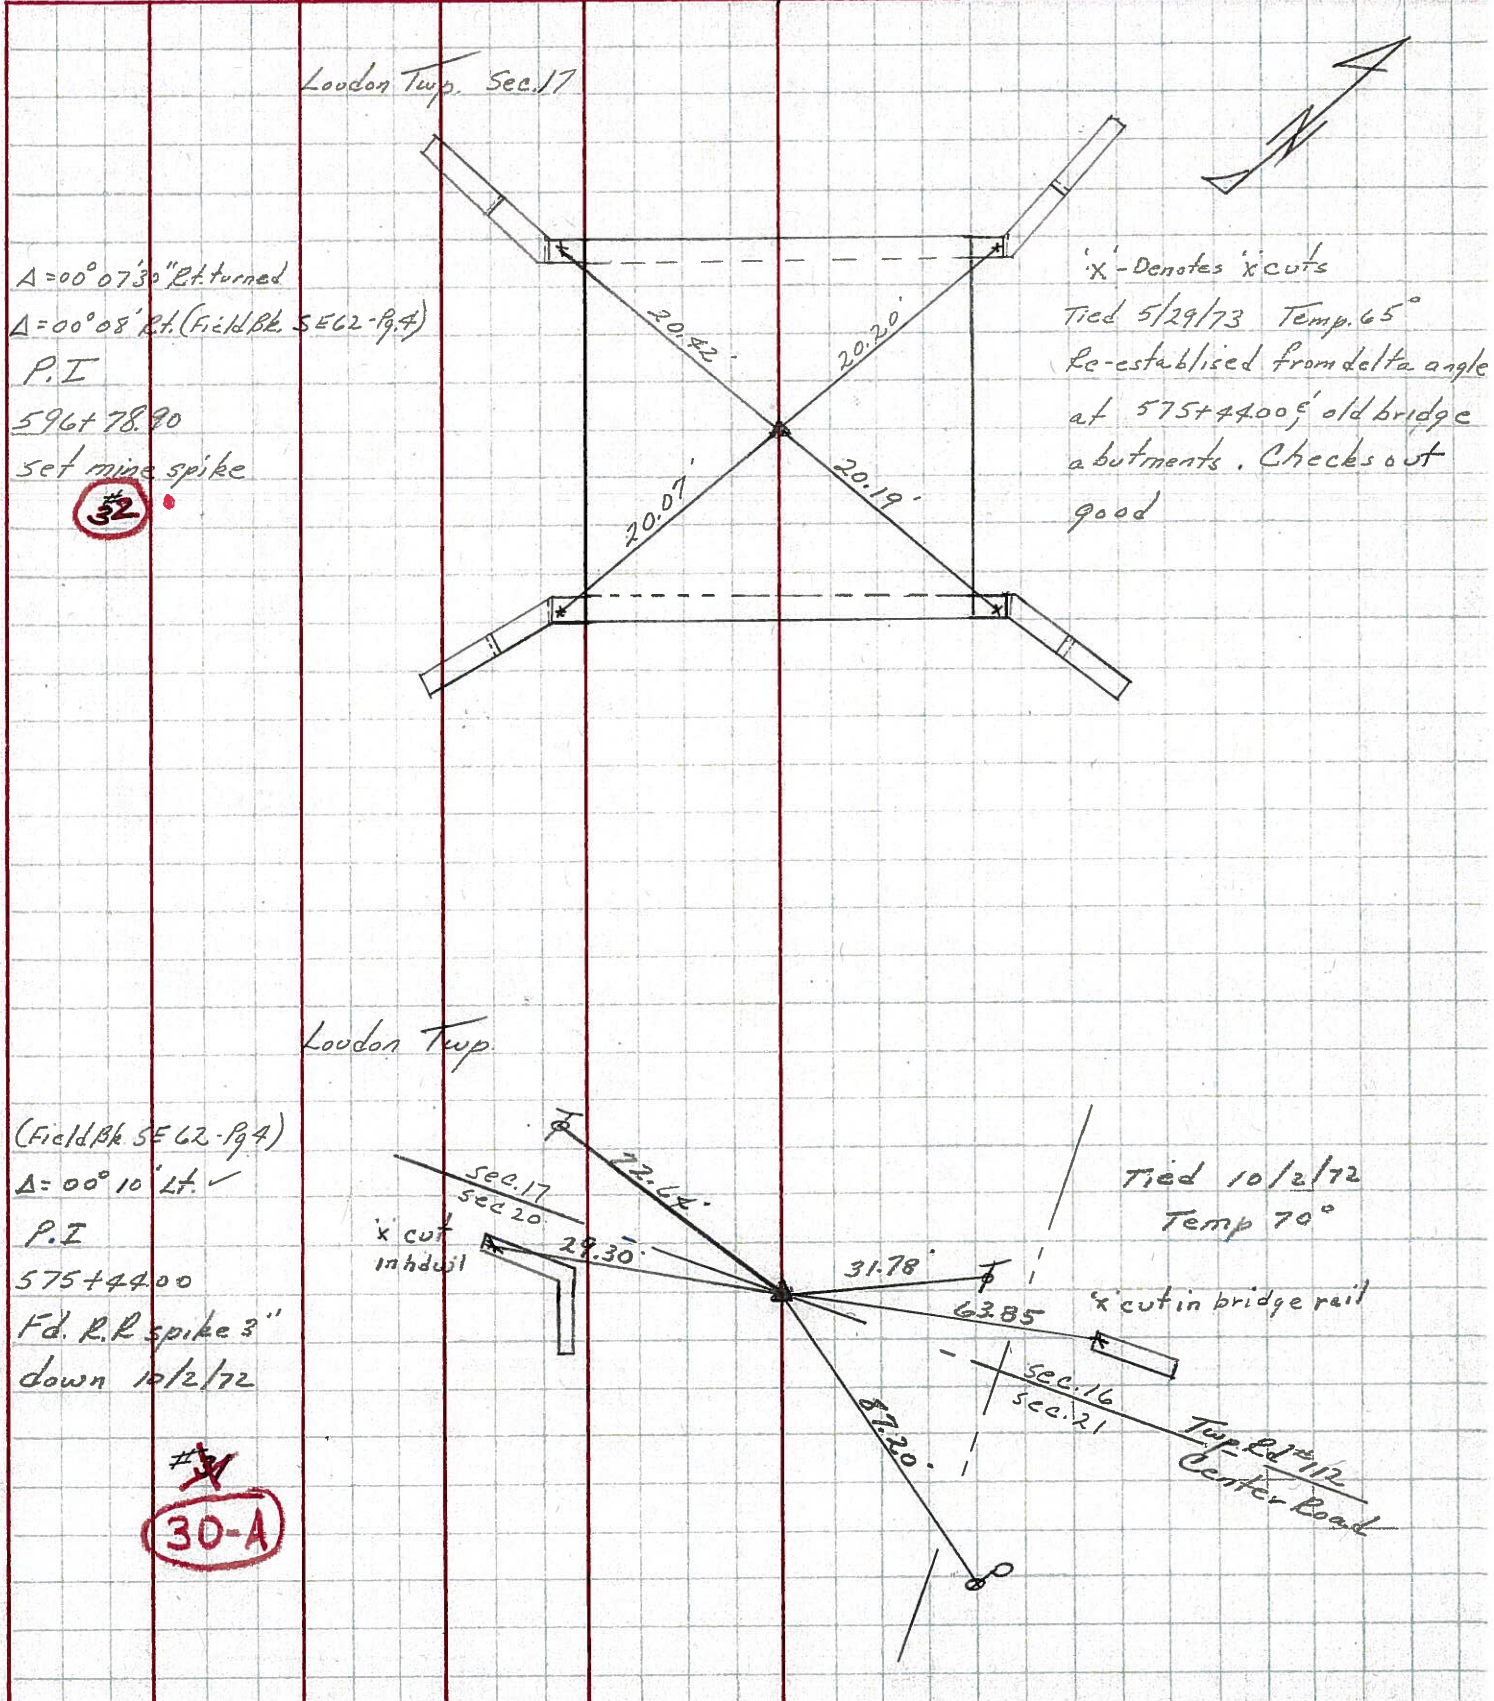 Loudon Twp. Sec. 17
N
Δ=00°07'30" Rt. turned
Δ=00°08' Rt. (Field Bk. SE62-Pg.4)
P.I
596+78.90
set mine spike
#32
20.42'
20.20'
20.07'
20.19'
'X'-Denotes 'x' cuts
Tied 5/29/73 Temp. 65°
Re-establised from delta angle
at 575+44.00 & old bridge
abutments. Checks out
good
Loudon Twp.
(Field Bk. SE 62-Pg 4)
Δ=00°10' Lt. ✓
P.I
575+44.00
Fd. R.R spike 3"
down 10/2/72
#31
30-A
sec. 17
sec 20
'x' cut
in hdwl
29.30'
31.78'
63.85
87.20'
Tied 10/2/72
Temp 70°
'x' cut in bridge rail
sec. 16
sec. 21
Twp. Rd #112
Center Road